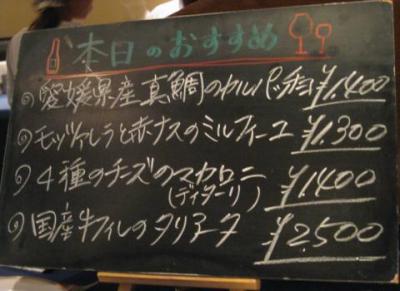 本日のおすすめ
愛媛県産真鯛のカルパッチョ ¥1.400
モッツァレラと赤ナスのミルフィーユ ¥1.300
4種のチーズのマカロニ ¥1400
(ディターリ)
国産牛フィレのタリアータ ¥2500